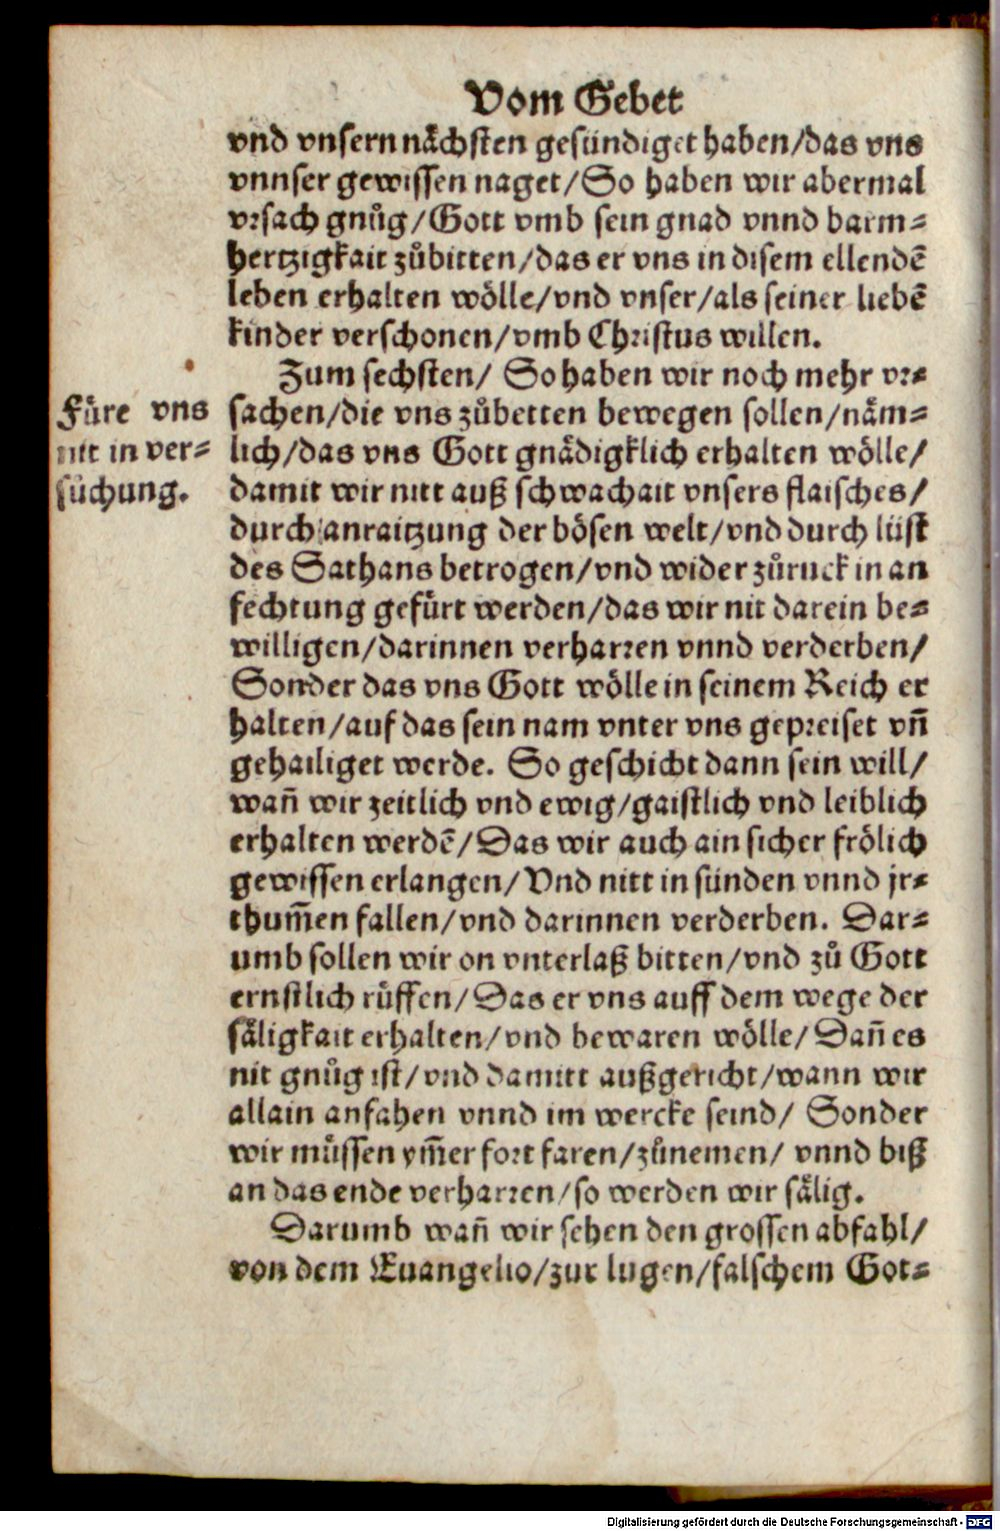 Vom Gebet
vnd vnsern nächsten gesündiget haben/das vns
vnnser gewissen naget/So haben wir abermal
vrsach gnůg/Gott vmb sein gnad vnnd barm⸗
hertzigkait zůbitten/das er vns in disem ellendē
leben erhalten wölle/vnd vnser/als seiner liebē
kinder verschonen/vmb Christus willen.
Zum sechsten/ So haben wir noch mehr vr⸗
sachen/die vns zůbetten bewegen sollen/näm⸗
lich/das vns Gott gnädigklich erhalten wölle/
damit wir nitt auß schwachait vnsers flaisches/
durch anraitzung der bösen welt/vnd durch lüst
des Sathans betrogen/vnd wider zůruck in an
fechtung gefürt werden/das wir nit darein be⸗
willigen/darinnen verharren vnnd verderben/
Sonder das vns Gott wölle in seinem Reich er
halten/auf das sein nam vnter vns gepreiset vn̄
gehailiget werde. So geschicht dann sein will/
wan̄ wir zeitlich vnd ewig/gaistlich vnd leiblich
erhalten werdē/Das wir auch ain sicher frölich
gewissen erlangen/Vnd nitt in sünden vnnd jr⸗
thum̄en fallen/vnd darinnen verderben. Dar⸗
umb sollen wir on vnterlaß bitten/vnd zů Gott
ernstlich rüffen/Das er vns auff dem wege der
säligkait erhalten/vnd bewaren wölle/Dan̄ es
nit gnůg ist/vnd damitt außgericht/wann wir
allain anfahen vnnd im wercke seind/ Sonder
wir müssen ym̄er fort faren/zůnemen/ vnnd biß
an das ende verharren/so werden wir sälig.
Darumb wan̄ wir sehen den grossen abfahl/
von dem Euangelio/zur lugen/falschem Got⸗
Füre vns
nit in ver⸗
süchung.
Digitalisierung gefördert durch die Deutsche Forschungsgemeinschaft - DFG